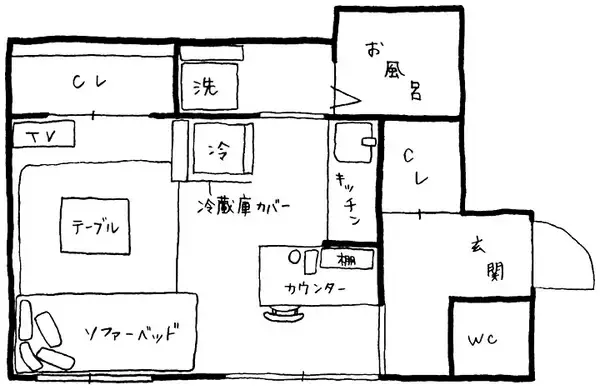 お風呂
CL
洗
TV
冷
キッチン
CL
冷蔵庫カバー
テーブル
玄関
棚
カウンター
ソファーベッド
WC